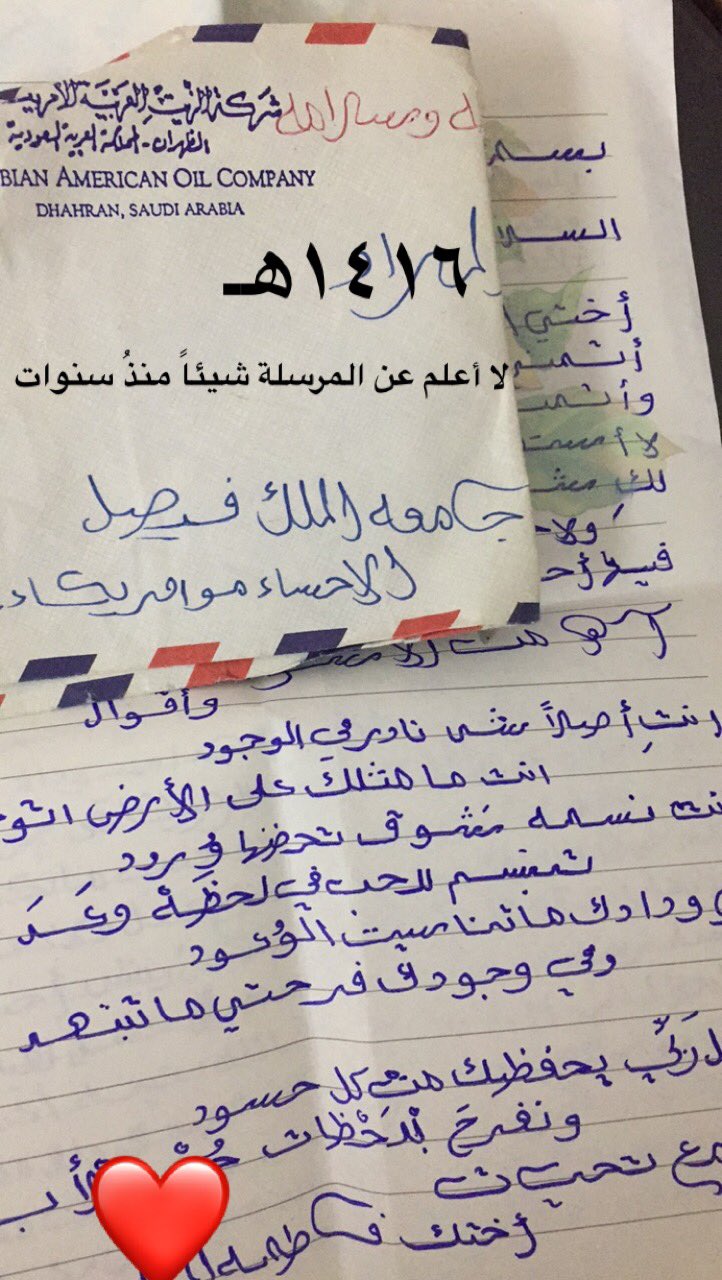 شركة الزيت العربية الأمريكية
الظهران - المملكة العربية السعودية
BIAN AMERICAN OIL COMPANY
DHAHRAN, SAUDI ARABIA
١٤١٦هـ
لا أعلم عن المرسلة شيئاً منذُ سنوات
جامعه الملك فيصل
الاحساء
بسم
السلا
أختي
أتمن
وأتمن
لا
لك
ولا
فيها أح
وأقوال
انتِ أصلاً شي نادر في الوجود
انت ما مثلك على الأرض
نسمه شوق تحضنها ورود
تبتسم للحب في لحظة وعَد
ودادك ما تناسيت الوُعود
وفي وجودك فرحتي ما تبتعد
ربّي يحفظك من كل حسود
ونفرح بلَحْظات
تحيات
أختك